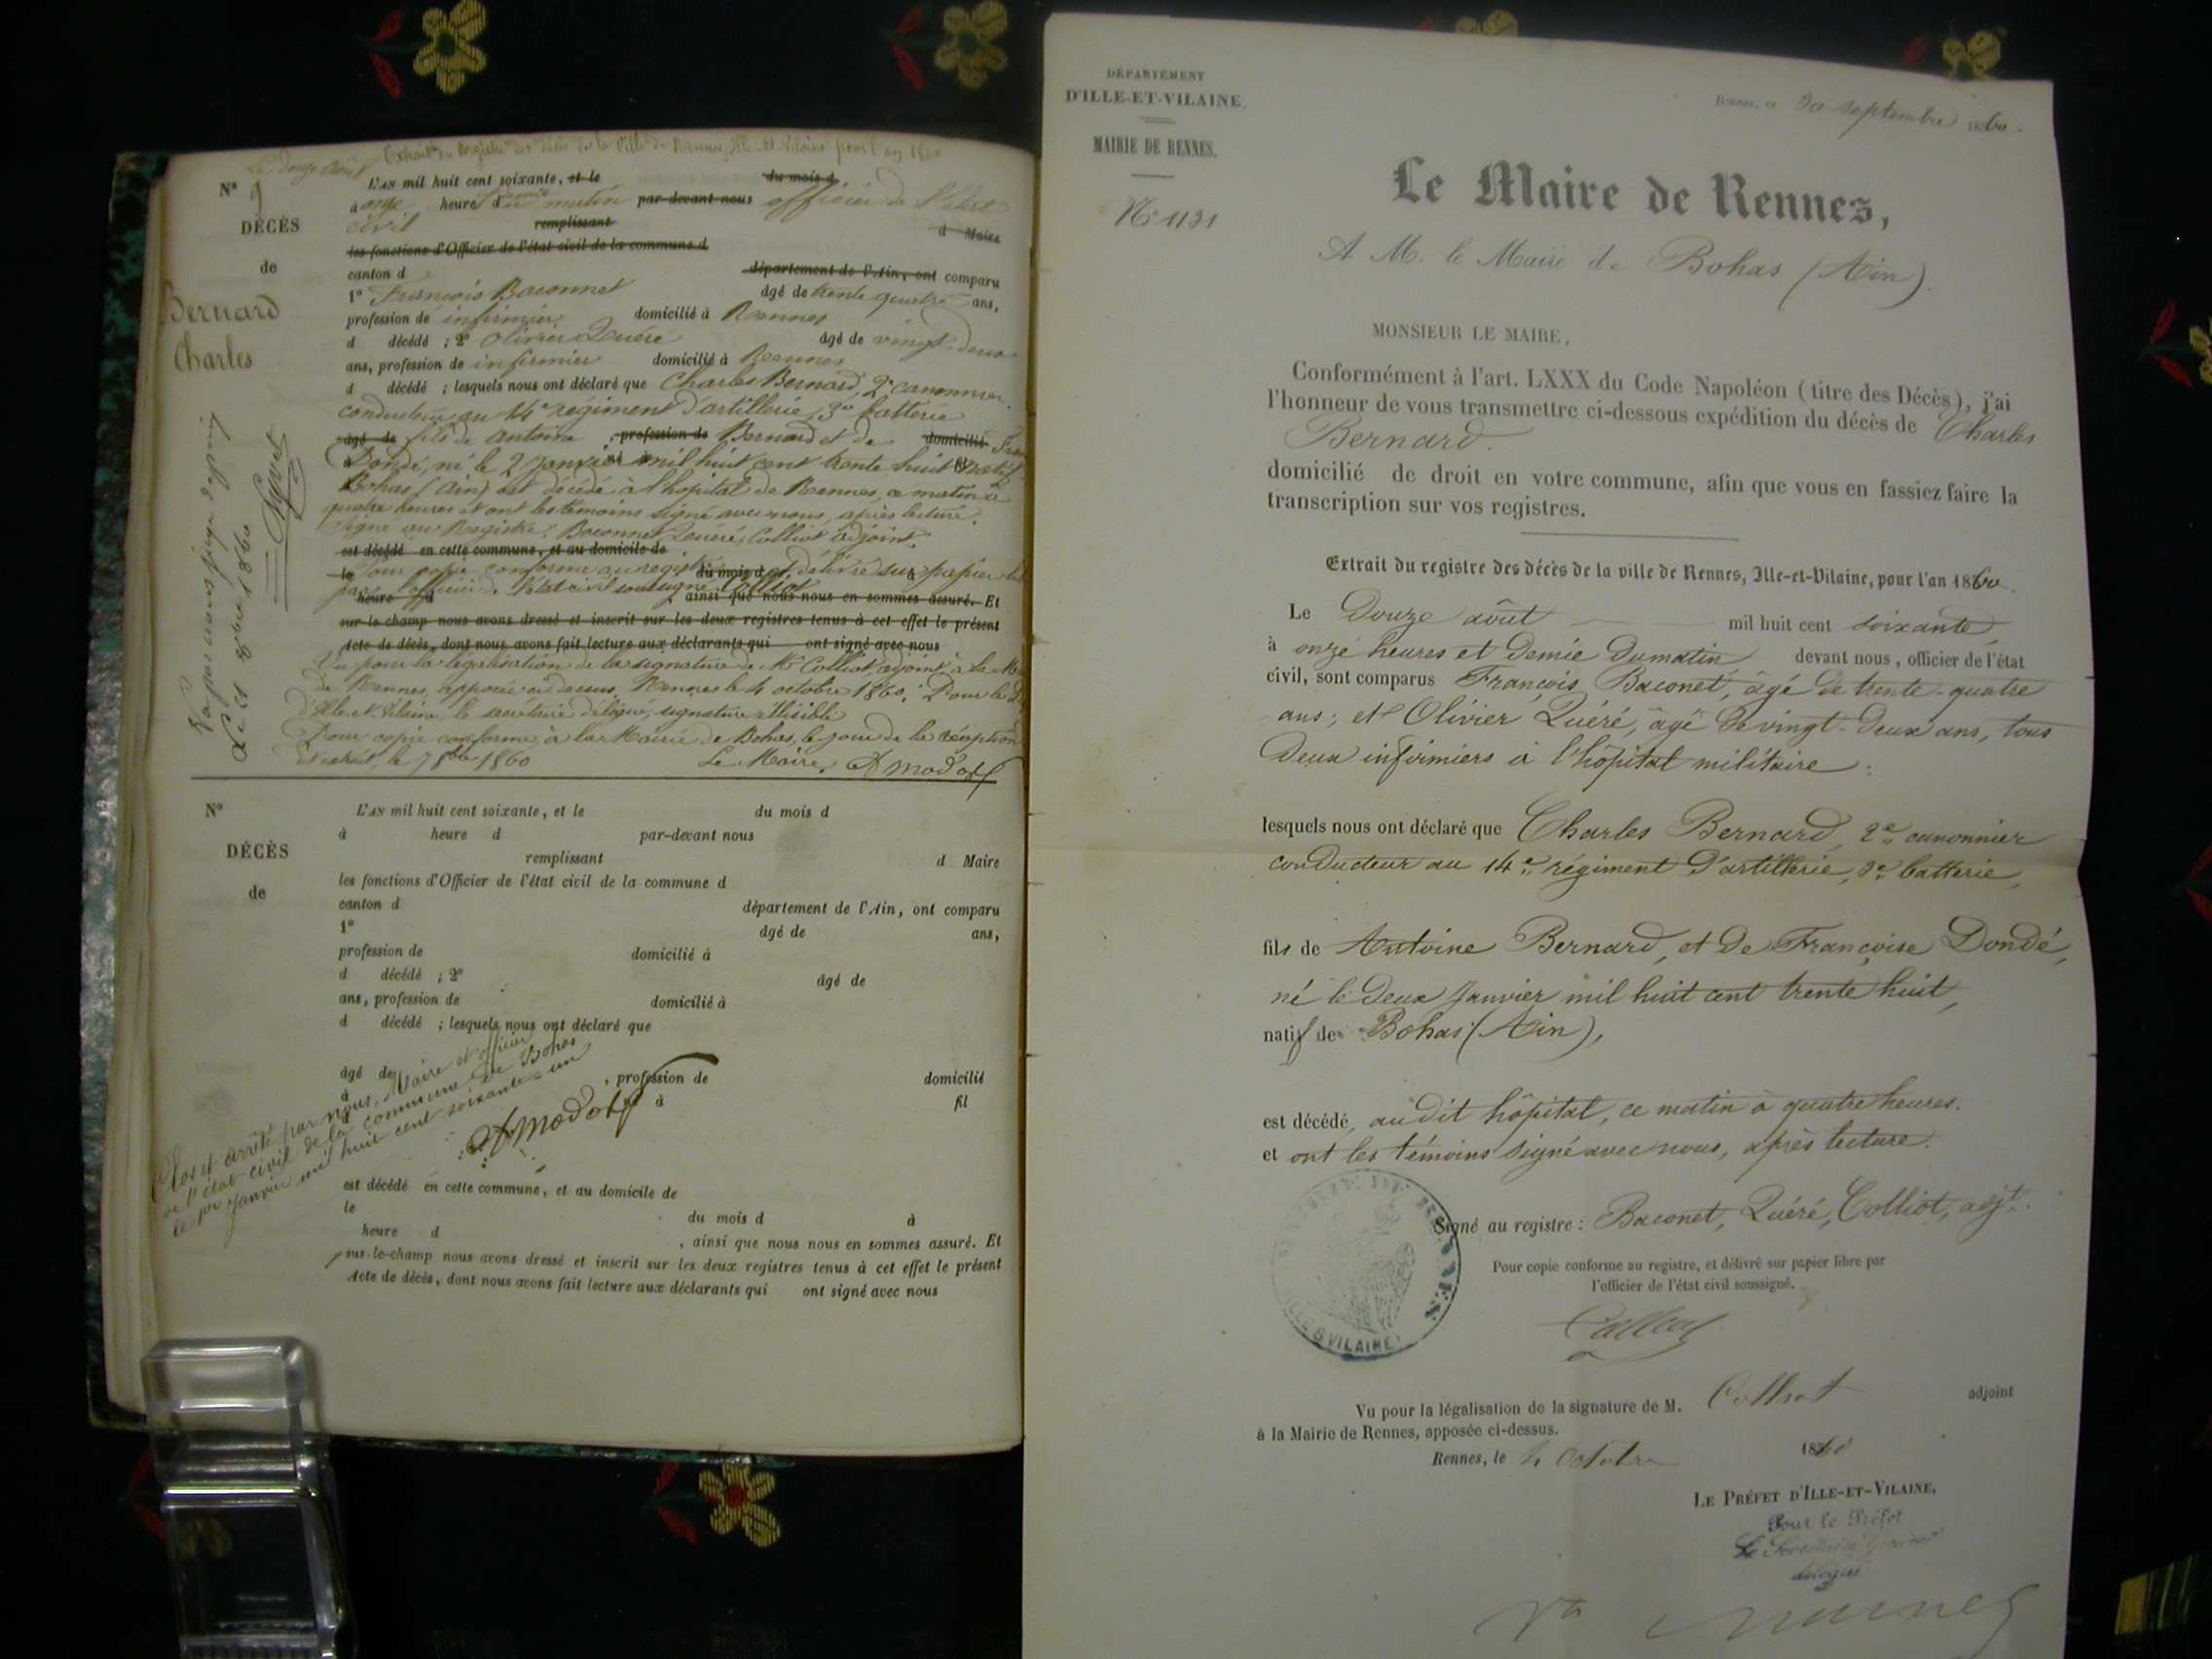 Extrait du Registre des décès de la Ville de Rennes, Ille-et-Vilaine pour l'an 1860
Le douze août
N° 9
DÉCÈS
de
Bernard
Charles
L'AN mil huit cent soixante, et le du mois d
à onze heure d demie du matin par-devant nous officier de l'état
civil remplissant d Maire
les fonctions d'Officier de l'état civil de la commune d
canton d département de l'Ain, ont comparu
1° François Baconnet âgé de trente quatre ans,
profession de infirmier domicilié à Rennes
d décédé ; 2° Olivier Quéré âgé de vingt-deux
ans, profession de infirmier domicilié à Rennes
d décédé ; lesquels nous ont déclaré que Charles Bernard, 2e canonnier
conducteur au 14e régiment d'artillerie, 3e batterie
âgé de fils de Antoine , profession de Bernard et de domicilié Fran
Dondé, né le 2 Janvier né à mil huit cent trente huit natif
Bohas (Ain) est décédé à l'hopital de Rennes, ce matin à
quatre heures et ont les témoins signé avec nous, après lecture.
Signé au Registre: Baconnet Quéré, Colliot adjoint.
est décédé en cette commune, et au domicile de
le Pour copie conforme au registre du mois d et délivré sur papier
par l'officier de l'état civil soussigné Colliot
heure d , ainsi que nous nous en sommes assuré. Et
sur-le-champ nous avons dressé et inscrit sur les deux registres tenus à cet effet le présent
Acte de décès, dont nous avons fait lecture aux déclarants qui ont signé avec nous
Vu pour la légalisation de la signature de Mr Colliot, adjoint à la M
de Rennes, apposée ci-dessus. Rennes le 4 octobre 1860. Pour le
d'Ille-et-Vilaine, le secrétaire délégué, signature illisible
Pour copie conforme à la Mairie de Bohas, le jour de la réception
Extrait, le 7 8bre 1860 Le Maire, A modot
N°
DÉCÈS
de
L'AN mil huit cent soixante, et le du mois d
à heure d par-devant nous
remplissant d Maire
les fonctions d'Officier de l'état civil de la commune d
canton d département de l'Ain, ont comparu
1° âgé de ans,
profession de domicilié à
d décédé ; 2° âgé de
ans, profession de domicilié à
d décédé ; lesquels nous ont déclaré que
âgé de , profession de domicilié
à né à fil
Clos et arrêté par nous, Maire et officier
de l'état civil de la commune de Bohas
le 1er Janvier mil huit cent soixante-un
A modot
est décédé en cette commune, et au domicile de
le du mois d à
heure d , ainsi que nous nous en sommes assuré. Et
sur-le-champ nous avons dressé et inscrit sur les deux registres tenus à cet effet le présent
Acte de décès, dont nous avons fait lecture aux déclarants qui ont signé avec nous
DÉPARTEMENT
D'ILLE-ET-VILAINE.
MAIRIE DE RENNES.
N° 1131
Rennes, ce 30 septembre 1860.
Le Maire de Rennes,
A M. le Maire de Bohas (Ain).
MONSIEUR LE MAIRE,
Conformément à l'art. LXXX du Code Napoléon (titre des Décès), j'ai
l'honneur de vous transmettre ci-dessous expédition du décès de Charles
Bernard.
domicilié de droit en votre commune, afin que vous en fassiez faire la
transcription sur vos registres.
Extrait du registre des décès de la ville de Rennes, Ille-et-Vilaine, pour l'an 1860.
Le Douze août mil huit cent soixante,
à onze heures et demie du matin devant nous, officier de l'état
civil, sont comparus François Baconet, âgé de trente-quatre
ans; et Olivier Quéré, âgé de vingt-deux ans, tous
deux infirmiers à l'hôpital militaire.
lesquels nous ont déclaré que Charles Bernard, 2e canonnier
conducteur au 14e régiment d'artillerie, 3e batterie,
fils de Antoine Bernard, et de Françoise Dondé,
né le deux Janvier mil huit cent trente huit,
natif de Bohas (Ain),
est décédé, audit hôpital, ce matin à quatre heures.
et ont les témoins signé avec nous, après lecture.
Signé au registre : Baconet, Quéré, Colliot, adjt.
Pour copie conforme au registre, et délivré sur papier libre par
l'officier de l'état civil soussigné.
Colliot
ILLE & VILAINE
Vu pour la légalisation de la signature de M. Colliot adjoint
à la Mairie de Rennes, apposée ci-dessus.
Rennes, le 4 Octobre 1860
LE PRÉFET D'ILLE-ET-VILAINE,
Pour le Préfet
Le Secrétaire Général
délégué